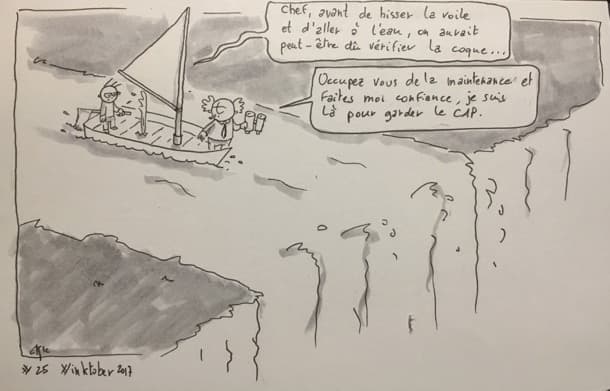 Chef, avant de hisser la voile
et d'aller à l'eau, on aurait
peut-être dû vérifier la coque...
Occupez vous de la maintenance et
faites moi confiance, je suis
là pour garder le CAP.
#25 #inktober 2017